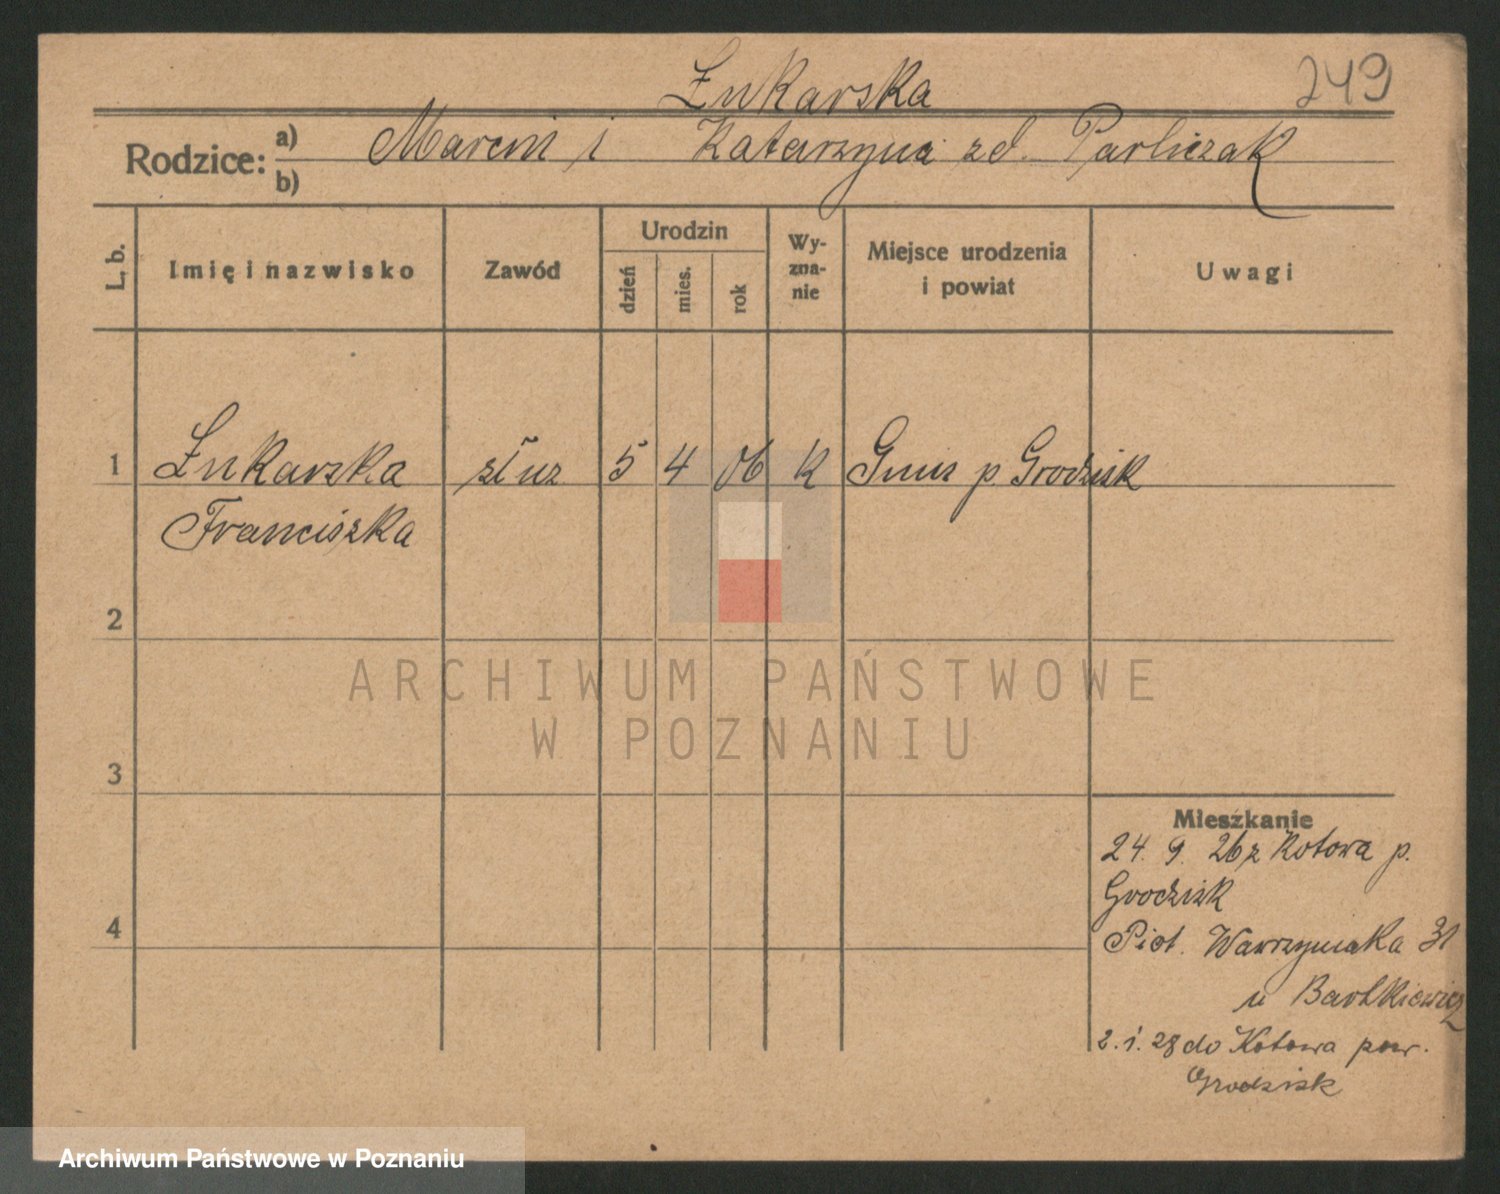 Łukarska
249
Rodzice: a) Marcin i Katarzyna zd. Pawliczak
b)
L. b.
Imię i nazwisko
Zawód
Urodzin
dzień
mies.
rok
Wy-
zna-
nie
Miejsce urodzenia
i powiat
Uwagi
1 Łukarska służ 5 4 06 K p. Grodzisk
Franciszka
2
3
4
Mieszkanie
24. 9. 26 z Kotowa p.
Grodzisk
Piot. Wawrzyniaka 31
u Bartkiewicz
2. 1. 28 do Kotowa pow.
Grodzisk
ARCHIWUM PAŃSTWOWE
W POZNANIU
Archiwum Państwowe w Poznaniu